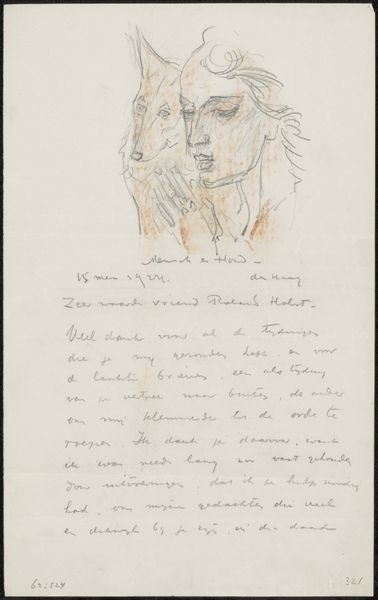 Mensch en Hond -
15 mei 1924. den Haag
Zeer waarde vriend Roland Holst -
Veel dank voor al de tijdingen
die je mij gezonden hebt en voor
de laatste brieven, een als tijding
van je vertrek naar buiten, de ander
om mij klemmender tot de orde te
roepen. Ik dank je daarvoor, want
ik was reeds lang zoo vast gehouden
door uitvoeringen, dat ik je hulp noodig
had, om mijne gedachten die veel
en dikwijls bij je zijn, in die daad
62:524
321